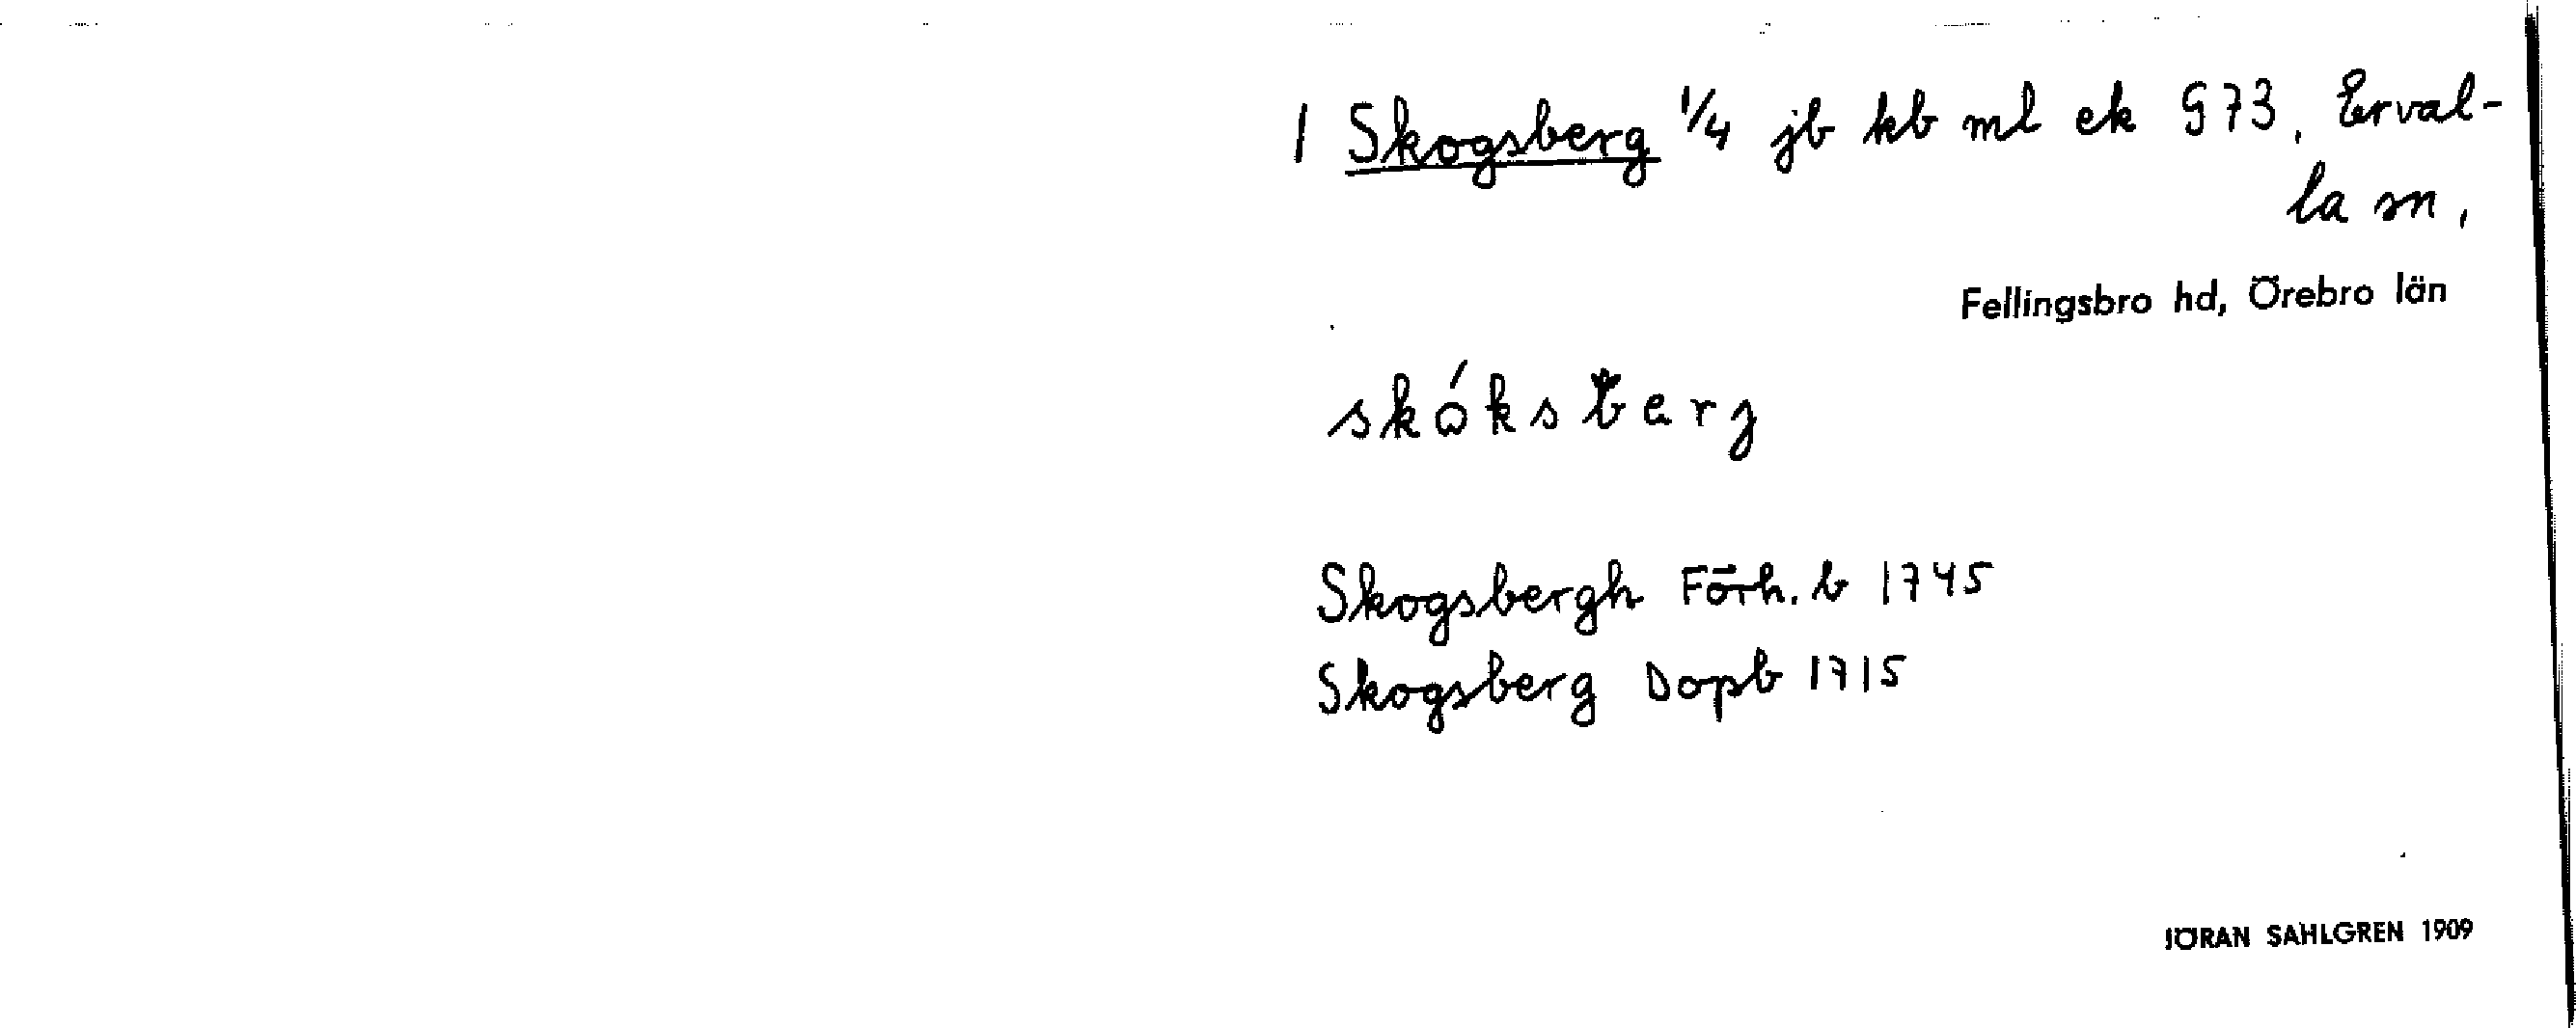 1 Skogsberg 1/4 jb kb ml ek G73, Erval-
la sn.
Fellingsbro hd, Örebro län
skóksberj
Skogsbergh Förh. b 1745
Skogsberg Dopb 1715
JÖRAN SAHLGREN 1909